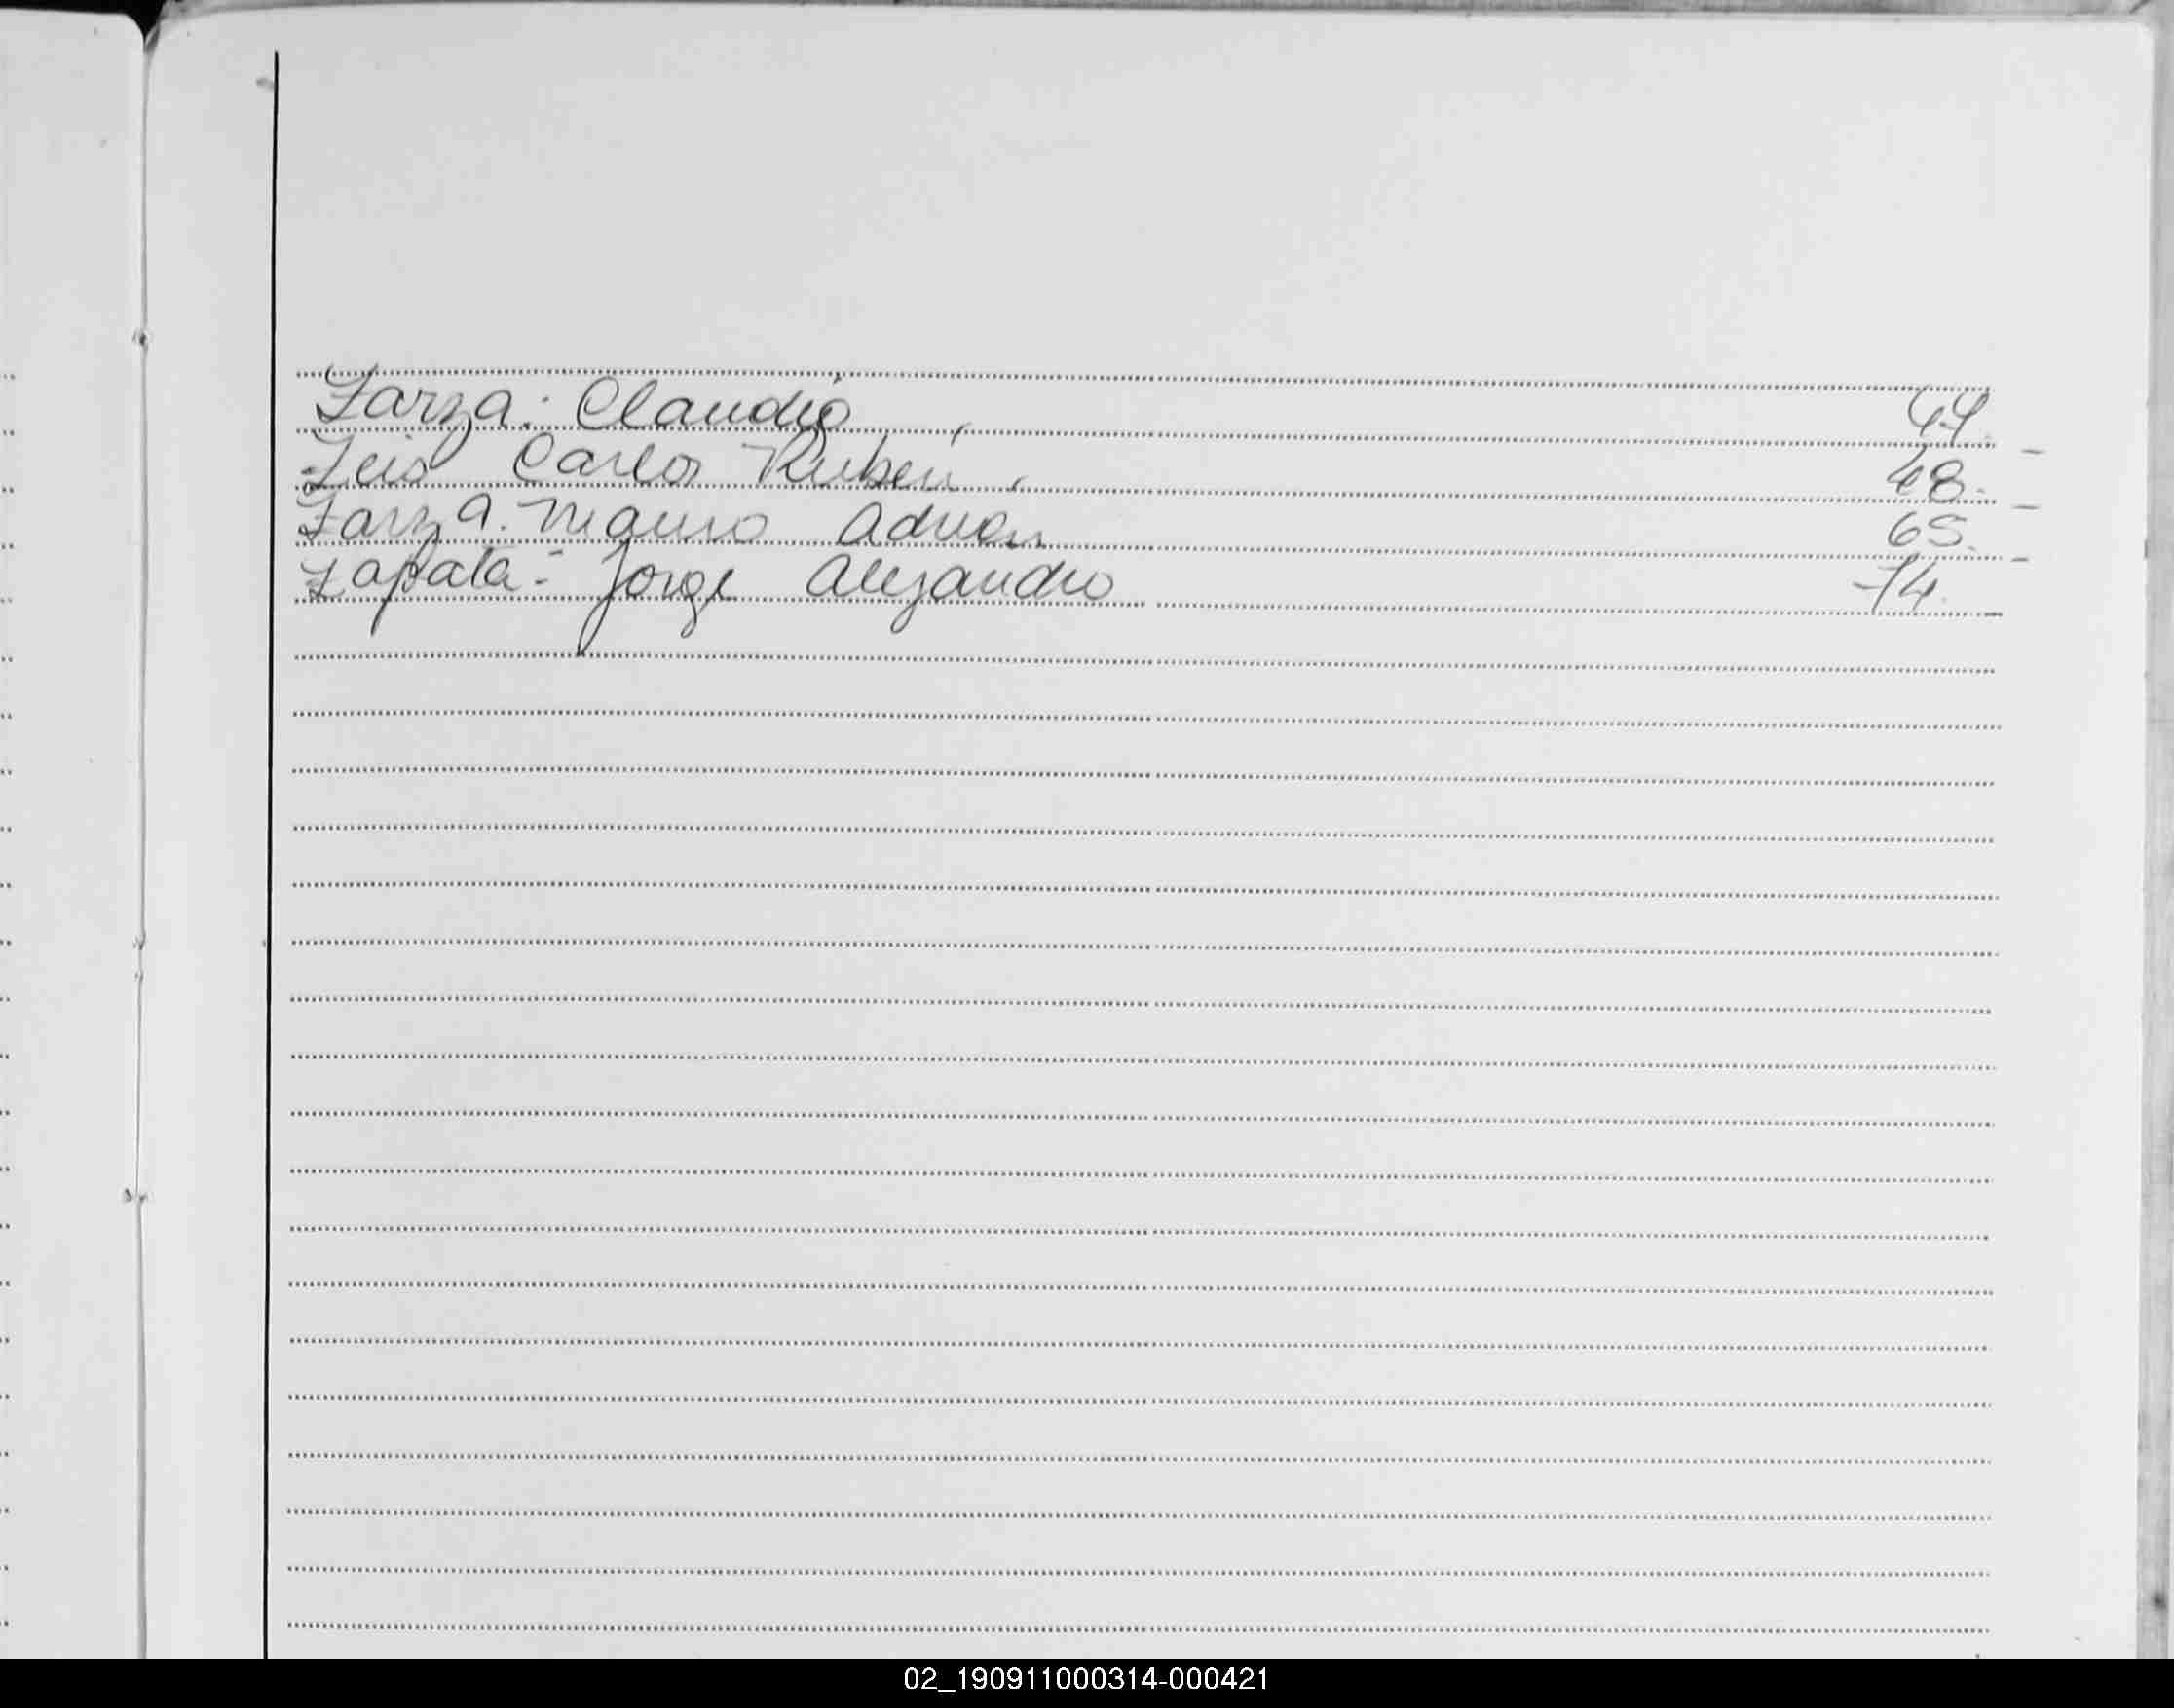 Zarza: Claudio 44.
Zeis Carlos Ruben. 48.
Zarza. Mauro Adrian 65.
Zapata- Jorge Alejandro 74.
02_190911000314-000421